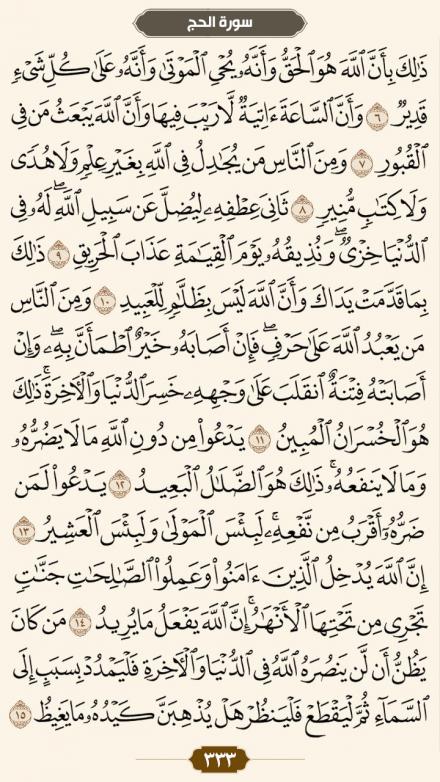 سورة الحج
ذَٰلِكَ بِأَنَّ ٱللَّهَ هُوَ ٱلْحَقُّ وَأَنَّهُۥ يُحْىِ ٱلْمَوْتَىٰ وَأَنَّهُۥ عَلَىٰ كُلِّ شَىْءٍ
قَدِيرٌ ٦ وَأَنَّ ٱلسَّاعَةَ ءَاتِيَةٌ لَّا رَيْبَ فِيهَا وَأَنَّ ٱللَّهَ يَبْعَثُ مَن فِى
ٱلْقُبُورِ ٧ وَمِنَ ٱلنَّاسِ مَن يُجَٰدِلُ فِى ٱللَّهِ بِغَيْرِ عِلْمٍ وَلَا هُدًى
وَلَا كِتَٰبٍ مُّنِيرٍ ٨ ثَانِىَ عِطْفِهِۦ لِيُضِلَّ عَن سَبِيلِ ٱللَّهِ ۖ لَهُۥ فِى
ٱلدُّنْيَا خِزْىٌ ۖ وَنُذِيقُهُۥ يَوْمَ ٱلْقِيَٰمَةِ عَذَابَ ٱلْحَرِيقِ ٩ ذَٰلِكَ
بِمَا قَدَّمَتْ يَدَاكَ وَأَنَّ ٱللَّهَ لَيْسَ بِظَلَّٰمٍ لِّلْعَبِيدِ ١٠ وَمِنَ ٱلنَّاسِ
مَن يَعْبُدُ ٱللَّهَ عَلَىٰ حَرْفٍ ۖ فَإِنْ أَصَابَهُۥ خَيْرٌ ٱطْمَأَنَّ بِهِۦ ۖ وَإِنْ
أَصَابَتْهُ فِتْنَةٌ ٱنقَلَبَ عَلَىٰ وَجْهِهِۦ خَسِرَ ٱلدُّنْيَا وَٱلْءَاخِرَةَ ۚ ذَٰلِكَ
هُوَ ٱلْخُسْرَانُ ٱلْمُبِينُ ١١ يَدْعُوا۟ مِن دُونِ ٱللَّهِ مَا لَا يَضُرُّهُۥ
وَمَا لَا يَنفَعُهُۥ ۚ ذَٰلِكَ هُوَ ٱلضَّلَٰلُ ٱلْبَعِيدُ ١٢ يَدْعُوا۟ لَمَن
ضَرُّهُۥٓ أَقْرَبُ مِن نَّفْعِهِۦ ۚ لَبِئْسَ ٱلْمَوْلَىٰ وَلَبِئْسَ ٱلْعَشِيرُ ١٣
إِنَّ ٱللَّهَ يُدْخِلُ ٱلَّذِينَ ءَامَنُوا۟ وَعَمِلُوا۟ ٱلصَّٰلِحَٰتِ جَنَّٰتٍ
تَجْرِى مِن تَحْتِهَا ٱلْأَنْهَٰرُ ۚ إِنَّ ٱللَّهَ يَفْعَلُ مَا يُرِيدُ ١٤ مَن كَانَ
يَظُنُّ أَن لَّن يَنصُرَهُ ٱللَّهُ فِى ٱلدُّنْيَا وَٱلْءَاخِرَةِ فَلْيَمْدُدْ بِسَبَبٍ إِلَى
ٱلسَّمَآءِ ثُمَّ لْيَقْطَعْ فَلْيَنظُرْ هَلْ يُذْهِبَنَّ كَيْدُهُۥ مَا يَغِيظُ ١٥
٣٣٣